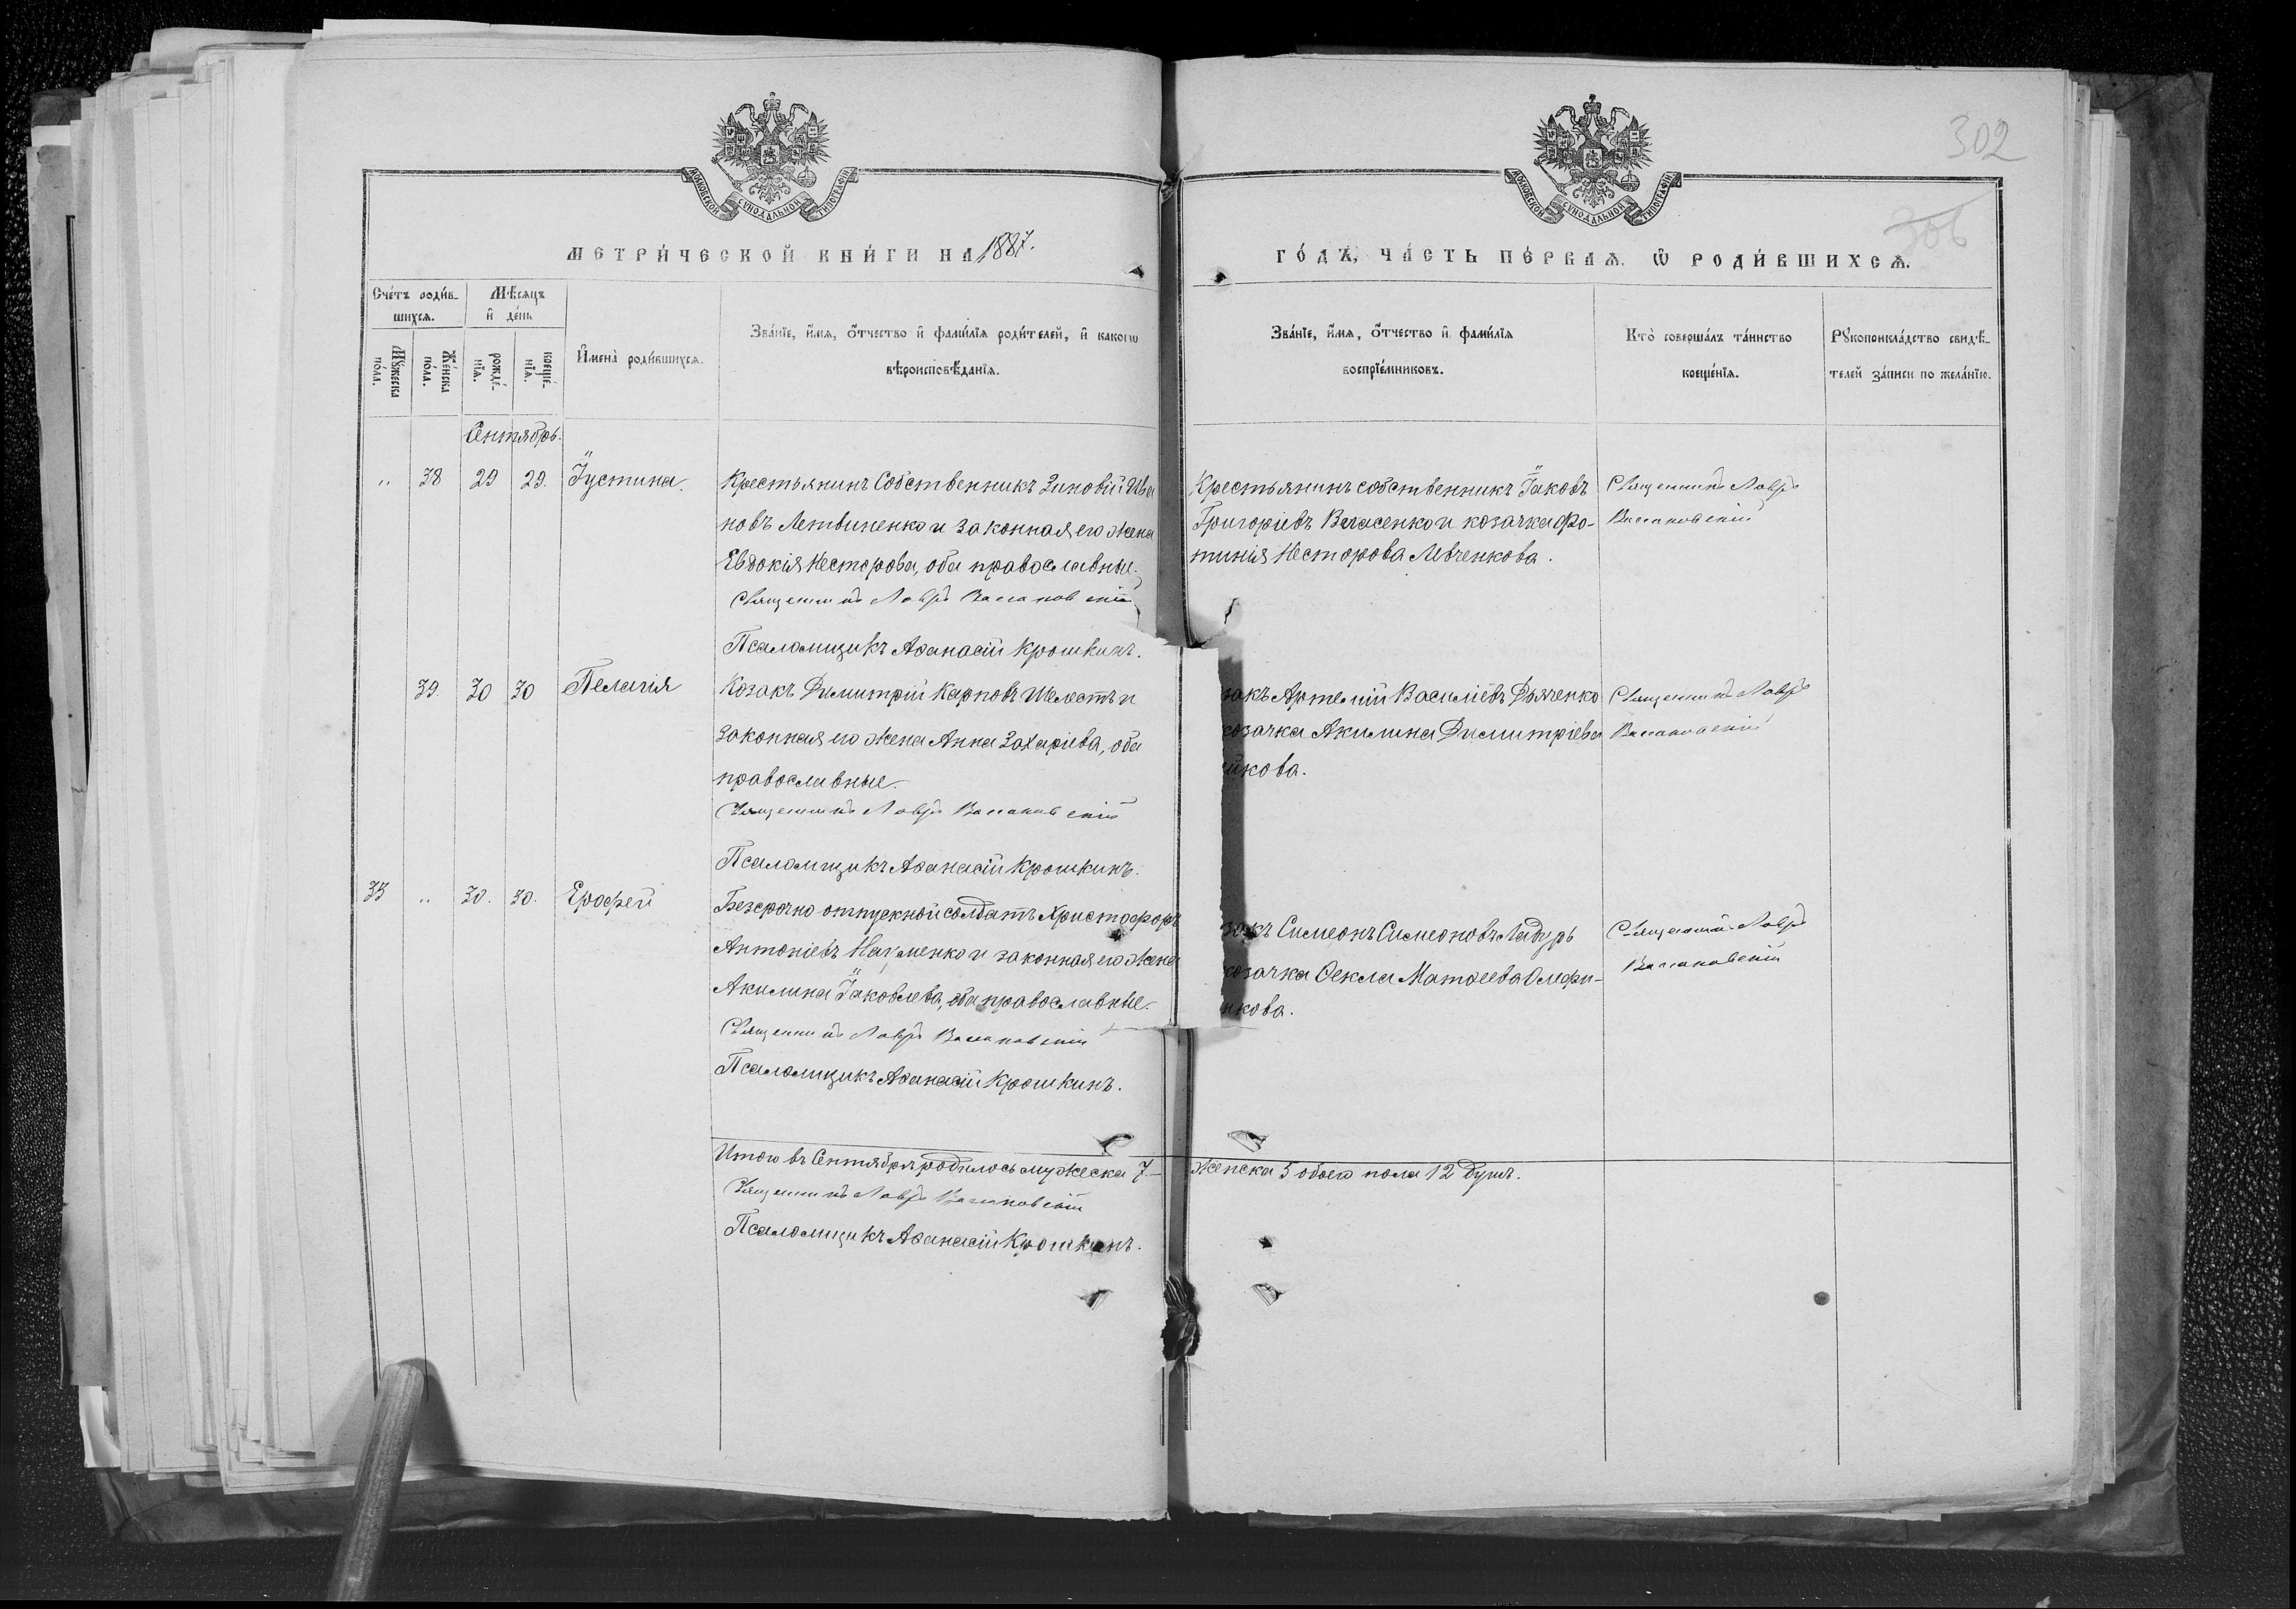 302
306
МОСКОВСКОЙ СѴНОДАЛЬНОЙ ТИПОГРАФІИ
МОСКОВСКОЙ СѴНОДАЛЬНОЙ ТИПОГРАФІИ
МЕТРИ́ЧЕСКОЙ КНИ́ГИ НА 1887.
ГО́ДЪ, ЧА́СТЬ ПЕ́РВАЯ, Ѿ РОДИ́ВШИХСѦ.
Сче́тъ роди́в-
шихсѧ.
Му́жеска по́ла.
Же́нска по́ла.
Мѣ́сяцъ
и҆ де́нь
рожде́-
нїѧ.
креще́-
нїѧ.
И҆мена̀ роди́вшихсѧ.
Зва́нїе, и҆́мя, ѻ҆́тчество и҆ фами́лїѧ роди́телей, и҆ какогѡ
вѣроисповѣ́данїѧ.
Зва́нїе, и҆́мя, ѻ҆́тчество и҆ фами́лїѧ
воспрїе́мниковъ.
Кто̀ соверша́лъ та́инство
креще́нїѧ.
Рꙋкоприкла́дство свидѣ́-
телей за́писи по жела́нїю.
Сентябрь.
„ 38 29 29. Іустина.
Крестьянинъ Собственникъ Зиновій Ива
новъ Летвиненко и законная его жена
Евдокія Несторова, оба православные.
Священникъ Лавръ
Псаломщикъ Аѳанасій Крошкинъ.
Крестьянинъ собственникъ Іаковъ
Григоріевъ Власенко и козачка Фо-
тинія Несторова Левченкова.
Священникъ Лавръ
39. 30 30 Пелагія
Козакъ Димитрій Карповъ Шелестъ и
законная его жена Анна Захаріева, оба
православные.
Священникъ Лавръ
Псаломщикъ Аѳанасій Крошкинъ.
закъ Артемій Василіевъ Дьяченко
козачка Акилина Димитріева
йкова.
Священникъ Лавръ
35 „ 30. 30. Ерофей
Безсрочно отпускной солдатъ Христофоръ
Антоніевъ Науменко и законная его жена
Акилина Іаковлева, оба православные.
Священникъ Лавръ
Псаломщикъ Аѳанасій Крошкинъ.
закъ Симеонъ Симеоновъ Ладуръ
козачка Ѳекла Матѳеева Олефи-
нкова.
Священникъ Лавръ
Итого въ Сентябрѣ родилось мужеска 7 –
женска 5 обоего пола 12 душъ.
Священникъ Лавръ
Псаломщикъ Аѳанасій Крошкинъ.